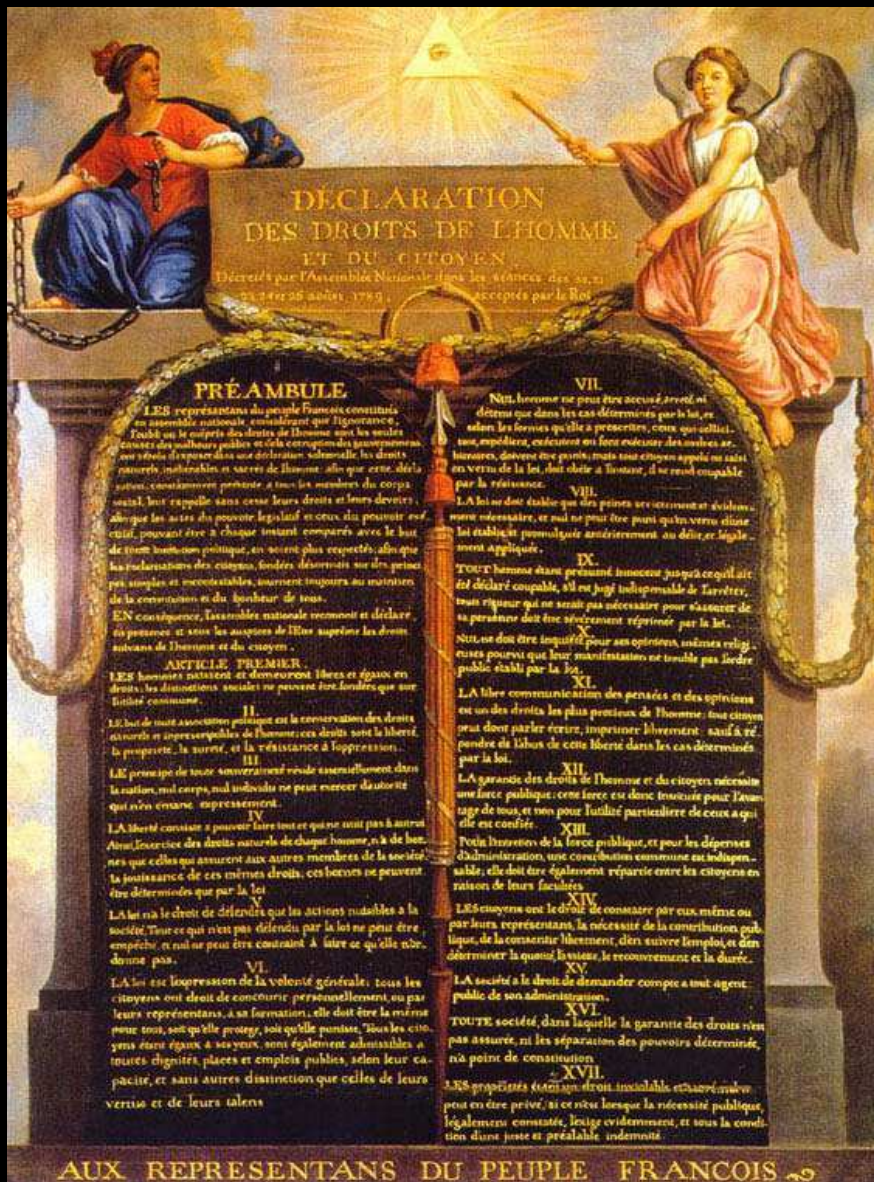 DÉCLARATION
DES DROITS DE L'HOMME
ET DU CITOYEN
Décretés par l'Assemblée Nationale dans les séances des 20, 21
23, 24 et 26 août 1789, acceptés par le Roi
PRÉAMBULE
LES représentans du peuple François constitués
en assemblée nationale, considérant que l'ignorance,
l'oubli ou le mépris des droits de l'homme sont les seules
causes des malheurs publics et de la corruption des gouvernemens
ont résolu d'exposer dans une déclaration solemnelle, les droits
naturels, inaliénables et sacrés de l'homme; afin que cette décla
ration, constamment présente a tous les membres du corps
social, leur rappelle sans cesse leurs droits et leurs devoirs,
afin que les actes du pouvoir legislatif et ceux du pouvoir exé
cutif, pouvant être à chaque instant comparés avec le but
de toute institution politique, en soient plus respectés; afin que
les reclamations des citoyens, fondées désormais sur des princi
pes simples et incontestables, tournent toujours au maintien
de la constitution et du bonheur de tous.
EN conséquence, l'assemblée nationale reconnoit et déclare
en presence et sous les auspices de l'Etre suprême les droits
suivans de l'homme et du citoyen.
ARTICLE PREMIER.
LES hommes naissent et demeurent libres et égaux en
droits, les distinctions sociales ne peuvent être fondées que sur
l'utilité commune.
II.
LE but de toute association politique est la conservation des droits
naturels et imprescriptibles de l'homme; ces droits sont la liberté,
la propriété, la sureté, et la résistance à l'oppression.
III.
LE principe de toute souveraineté réside essentiellement dans
la nation, nul corps, nul individu ne peut exercer d'autorité
qui n'en émane expressement.
IV.
LA liberté consiste a pouvoir faire tout ce qui ne nuit pas à autrui
Ainsi, l'exercice des droits naturels de chaque homme, n'a de bor-
nes que celles qui assurent aux autres membres de la société
la jouissance de ces mêmes droits; ces bornes ne peuvent
être déterminées que par la loi
V.
LA loi n'a le droit de défendre que les actions nuisibles à la
société. Tout ce qui n'est pas défendu par la loi ne peut être
empêché, et nul ne peut être contraint à faire ce qu'elle n'or-
donne pas.
VI.
LA loi est l'expression de la volonté générale; tous les
citoyens ont droit de concourir personnellement, ou par
leurs représentans, à sa formation; elle doit être la même
pour tous, soit qu'elle protege, soit qu'elle punisse. Tous les cito-
yens étant égaux à ses yeux, sont également admissibles a
toutes dignités, places et emplois publics, selon leur ca-
pacité, et sans autres distinction que celles de leurs
vertus et de leurs talens
VII.
NUL homme ne peut être accusé, arreté, ni
détenu que dans les cas déterminés par la loi, et
selon les formes qu'elle a prescrites, ceux qui sollici-
tent, expédient, exécutent ou font exécuter des ordres ar-
bitraires, doivent être punis; mais tout citoyen appelé ou saisi
en vertu de la loi, doit obéir à l'instant, il se rend coupable
par la résistance.
VIII.
LA loi ne doit établir que des peines strictement et évidem-
ment nécessaire, et nul ne peut être puni qu'en vertu d'une
loi établie et promulguée antérieurement au délit, et légale-
ment appliquée.
IX.
TOUT homme étant présumé innocent jusqu'à ce qu'il ait
été déclaré coupable, s'il est jugé indispensable de l'arrêter,
toute rigueur qui ne serait pas nécessaire pour s'assurer de
sa personne doit être sévèrement réprimée par la loi.
X.
NUL ne doit être inquiété pour ses opinions, mêmes religi-
euses pourvu que leur manifestation ne trouble pas l'ordre
public établi par la loi.
XI.
LA libre communication des pensées et des opinions
est un des droits les plus precieux de l'homme; tout citoyen
peut dont parler écrire, imprimer librement; sauf à ré-
pondre de l'abus de cette liberté dans les cas déterminés
par la loi.
XII.
LA garantie des droits de l'homme et du citoyen nécessite
une force publique; cette force est donc instituée pour l'avan-
tage de tous, et non pour l'utilité particuliere de ceux a qui
elle est confiée.
XIII.
POUR l'entretien de la force publique, et pour les dépenses
d'administration, une contribution commune est indispen-
sable; elle doit être également répartie entre les citoyens en
raison de leurs facultées
XIV.
LES citoyens ont le droit de constater par eux même ou
par leurs représentans, la nécessité de la contribution pub-
lique, de la consentir librement, d'en suivre l'emploi, et d'en
déterminer la quotité, l'assiete, le recouvrement et la durée.
XV.
LA société a le droit de demander compte a tout agent
public de son administration.
XVI.
TOUTE société, dans laquelle la garantie des droits n'est
pas assurée, ni les séparation des pouvoirs déterminée,
n'a point de constitution
XVII.
LES propriétés étant un droit inviolable et sacré, nul ne
peut en être privé, si ce n'est lorsque la nécessité publique,
légalement constatée, l'exige evidemment, et sous la condi-
tion d'une juste et préalable indemnité
AUX REPRESENTANS DU PEUPLE FRANCOIS